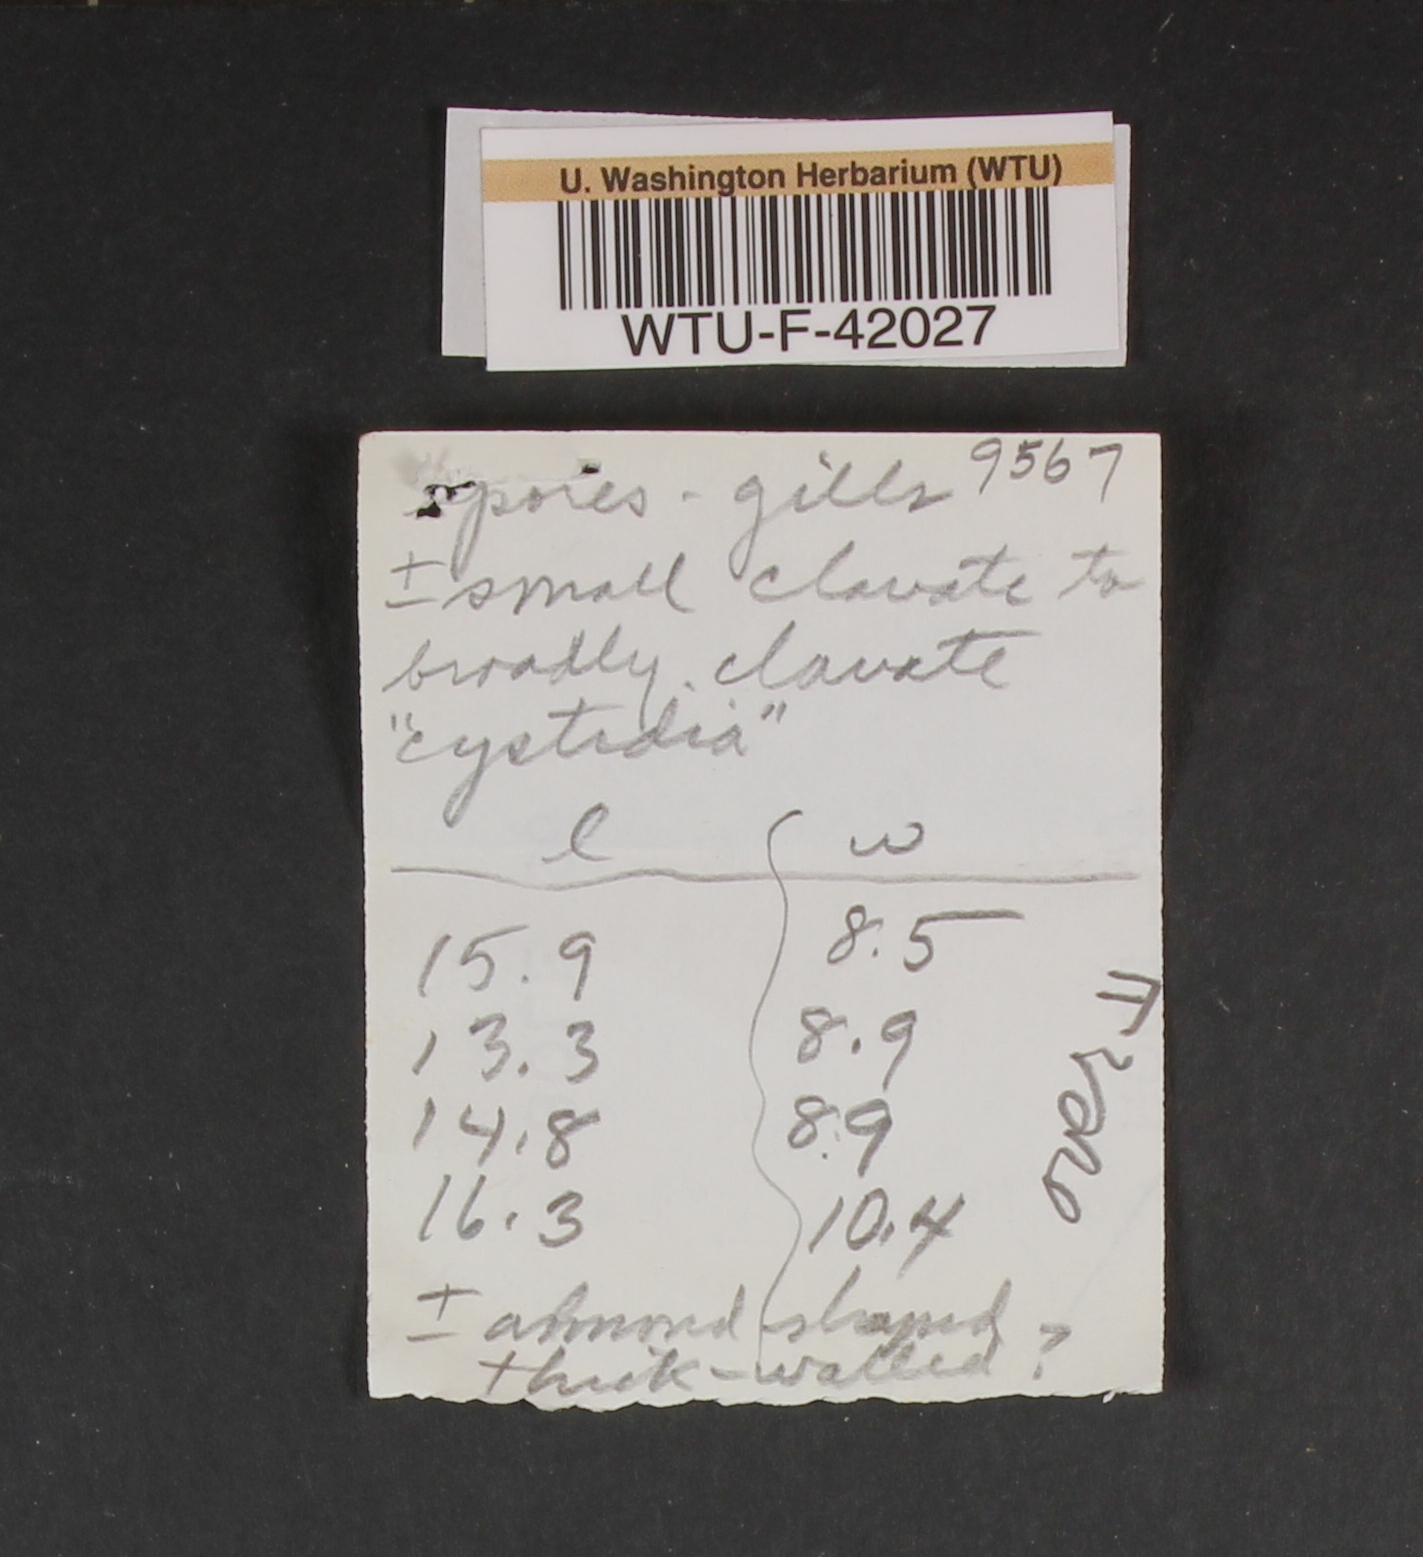 U. Washington Herbarium (WTU)
WTU-F-42027
spores - gills 9567
± small clavate to
broadly clavate
"cystidia"
l w
15.9 8.5
13.3 8.9
14.8 8.9
16.3 10.4
over →
± almond-shaped,
thick-walled?